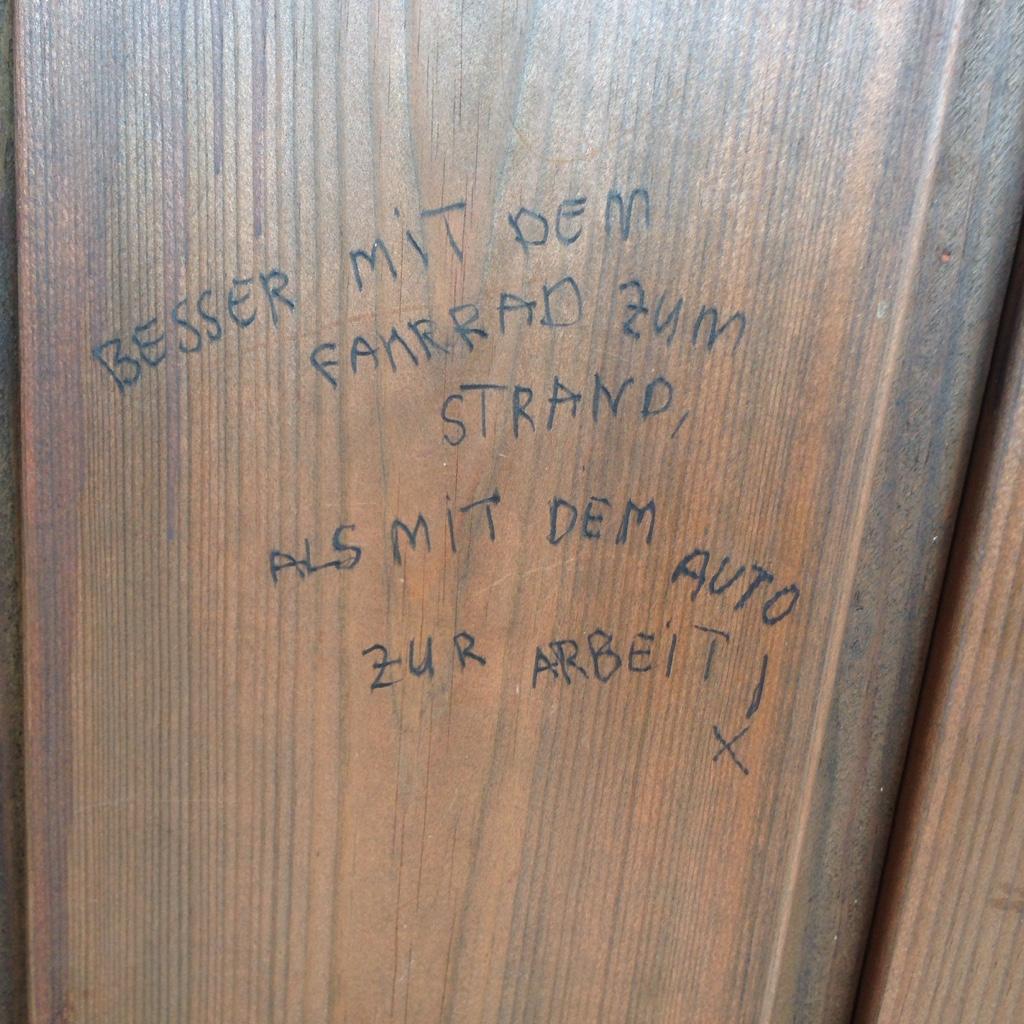 BESSER MIT DEM
FAHRRAD ZUM
STRAND,
ALS MIT DEM AUTO
ZUR ARBEIT!
X